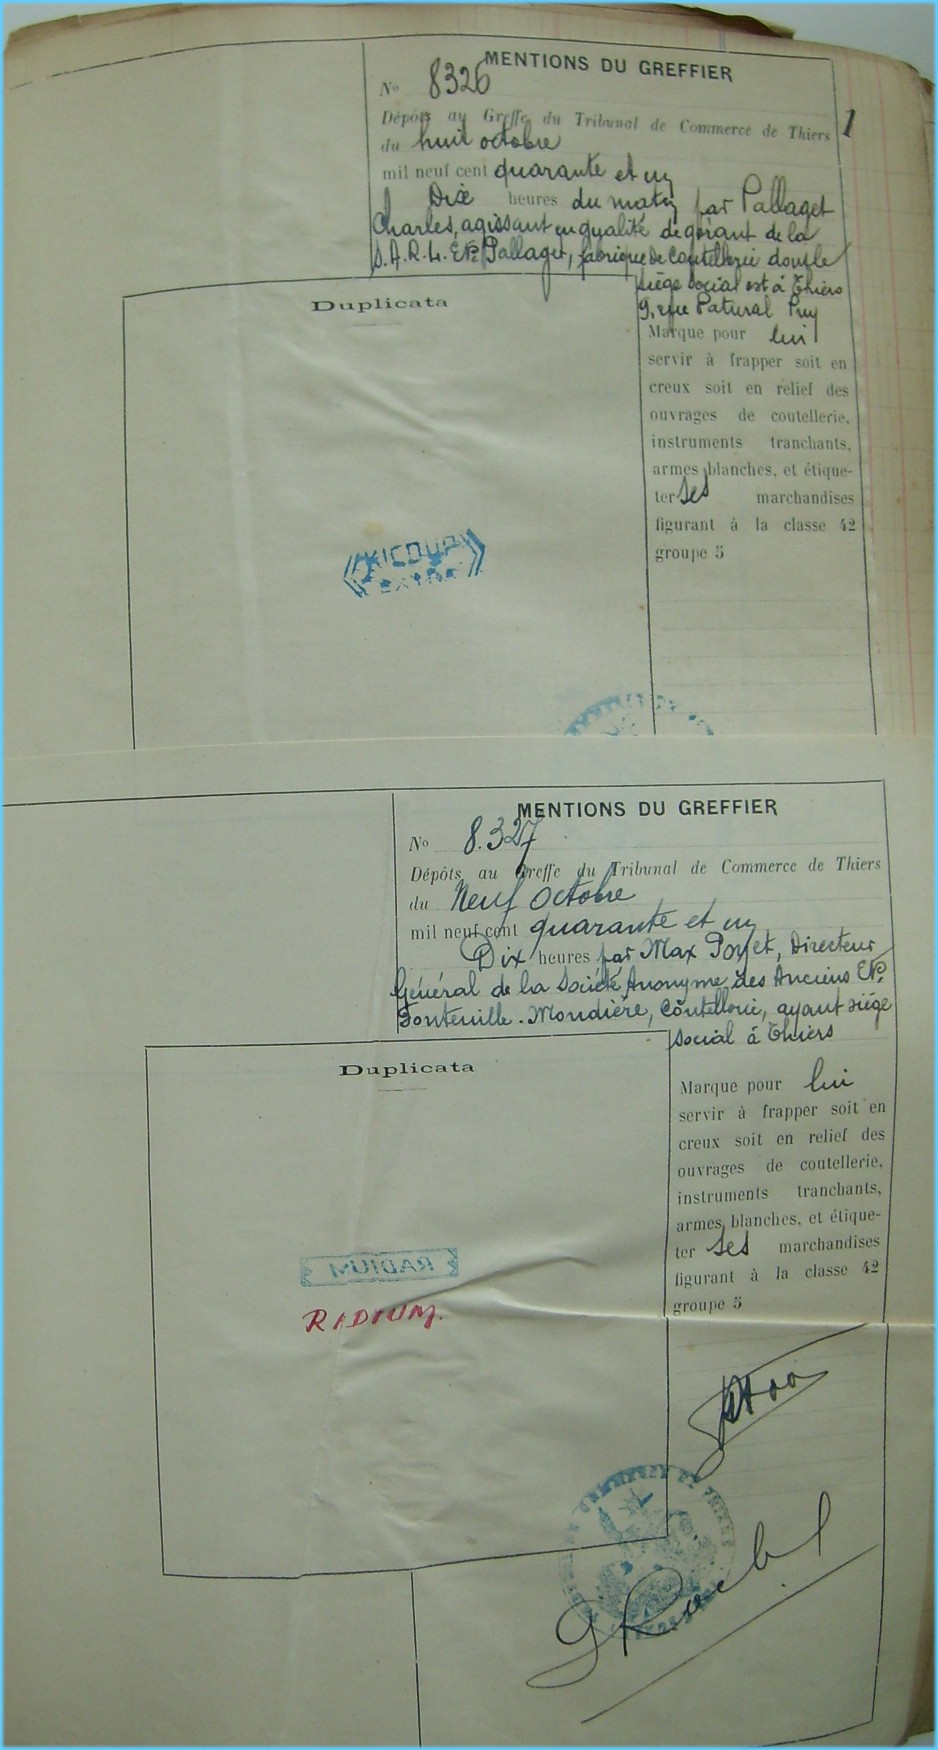 MENTIONS DU GREFFIER
No 8326
Dépôts au Greffe du Tribunal de Commerce de Thiers
1
du huit octobre
mil neuf cent quarante et un
Dix heures du matin par Pallaget
Charles, agissant en qualité de gérant de la
S.A.R.L. Ets Pallaget, fabrique de Coutellerie dont le
siège social est à Thiers
9, rue Patural Puy
Duplicata
Marque pour lui
servir à frapper soit en
creux soit en relief des
ouvrages de coutellerie,
instruments tranchants,
armes blanches, et étique-
ter ses marchandises
figurant à la classe 42
groupe 5
KICOUP
EXTRA
MENTIONS DU GREFFIER
No 8.327
Dépôts au Greffe du Tribunal de Commerce de Thiers
du Neuf Octobre
mil neuf cent quarante et un
Dix heures par Max Poyet, Directeur
Général de la Société Anonyme des Anciens Ets
Fontenille-Mondière, Coutellerie, ayant siège
social à Thiers
Duplicata
Marque pour lui
servir à frapper soit en
creux soit en relief des
ouvrages de coutellerie,
instruments tranchants,
armes blanches, et étique-
ter ses marchandises
figurant à la classe 42
groupe 5
RADIUM
RADIUM.